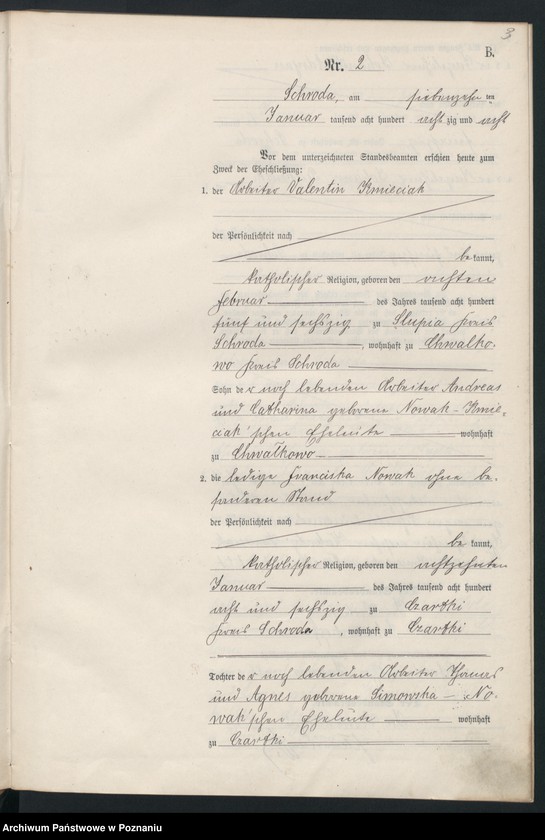 3
B.
Nr. 2
Schroda, am siebenzehn ten
Januar tausend acht hundert achtzig und acht
Vor dem unterzeichneten Standesbeamten erschien heute zum
Zweck der Eheschließung:
1. der Arbeiter Valentin Kmieciak
der Persönlichkeit nach
bekannt,
katholischer Religion, geboren den achten
Februar des Jahres tausend acht hundert
fünf und sechszig zu Slupia Kreis
Schroda, wohnhaft zu Chwalko-
wo Kreis Schroda
Sohn der noch lebenden Arbeiter Andreas
und Catharina geborene Nowak - Kmie-
ciak'schen Eheleute wohnhaft
zu Chwałkowo
2. die ledige Franciska Nowak ohne be-
sonderen Stand
der Persönlichkeit nach
bekannt,
katholischer Religion, geboren den achtzehnten
Januar des Jahres tausend acht hundert
acht und sechszig zu Czartki
Kreis Schroda, wohnhaft zu Czartki
Tochter der noch lebenden Arbeiter Thomas
und Agnes geborene Simowska - No-
wak'schen Eheleute wohnhaft
zu Czartki
Archiwum Państwowe w Poznaniu